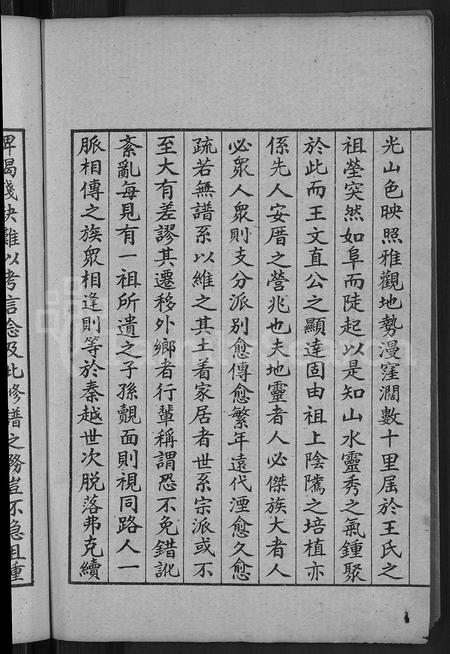 光山色映照雅觀地勢漫窪濶數十里屆於王氏之
祖塋突然如阜而陡起以是知山水靈秀之氣鍾聚
於此而王文直公之顯達固由祖上陰隲之培植亦
係先人安厝之營兆也夫地靈者人必傑族大者人
必衆人衆則支分派別愈傳愈繁年遠代湮愈久愈
疏若無譜系以維之其土着家居者世系宗派或不
至大有差謬其遷移外鄉者行輩稱謂恐不免錯訛
紊亂每見有一祖所遺之子孫覿面則視同路人一
脈相傳之族衆相逢則等於秦越世次脫落弗克續
碣殘缺難以考言念及此修譜之務豈不急且重